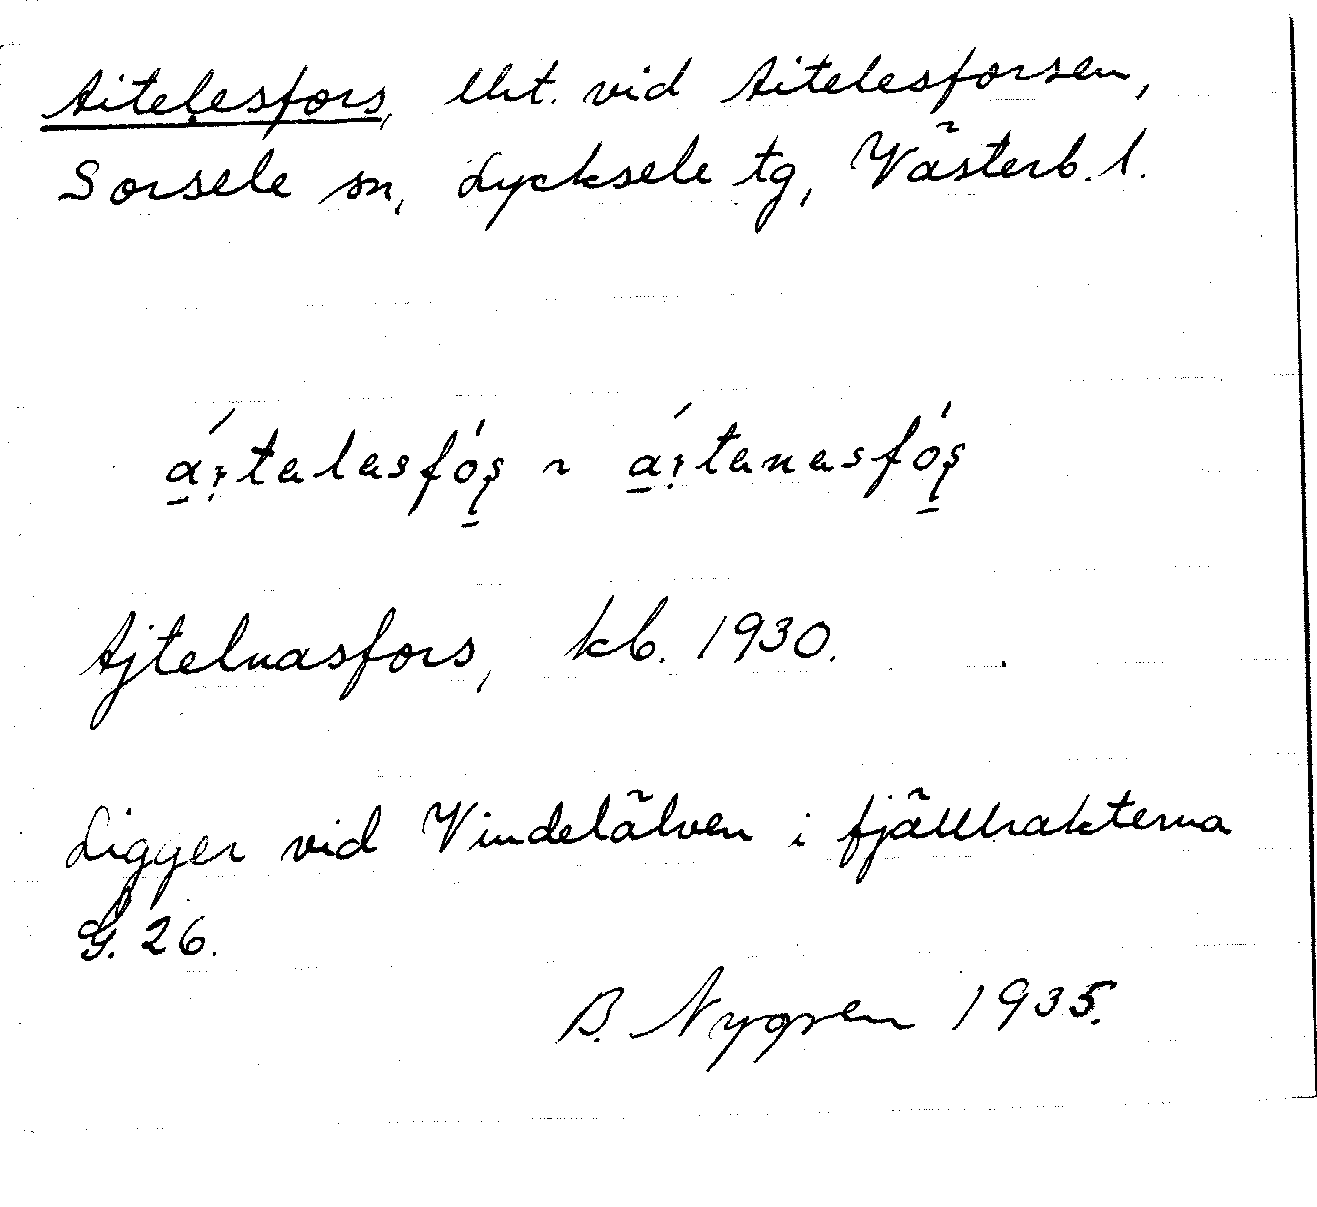 Aitelesfors, lht. vid Aitelesforsen,
Sorsele sn, Lycksele tg, Västerb. l.
Ajtelnasfors, kb. 1930.
Ligger vid Vindelälven i fjälltrakterna
G. 26.
B. Nygren 1935.